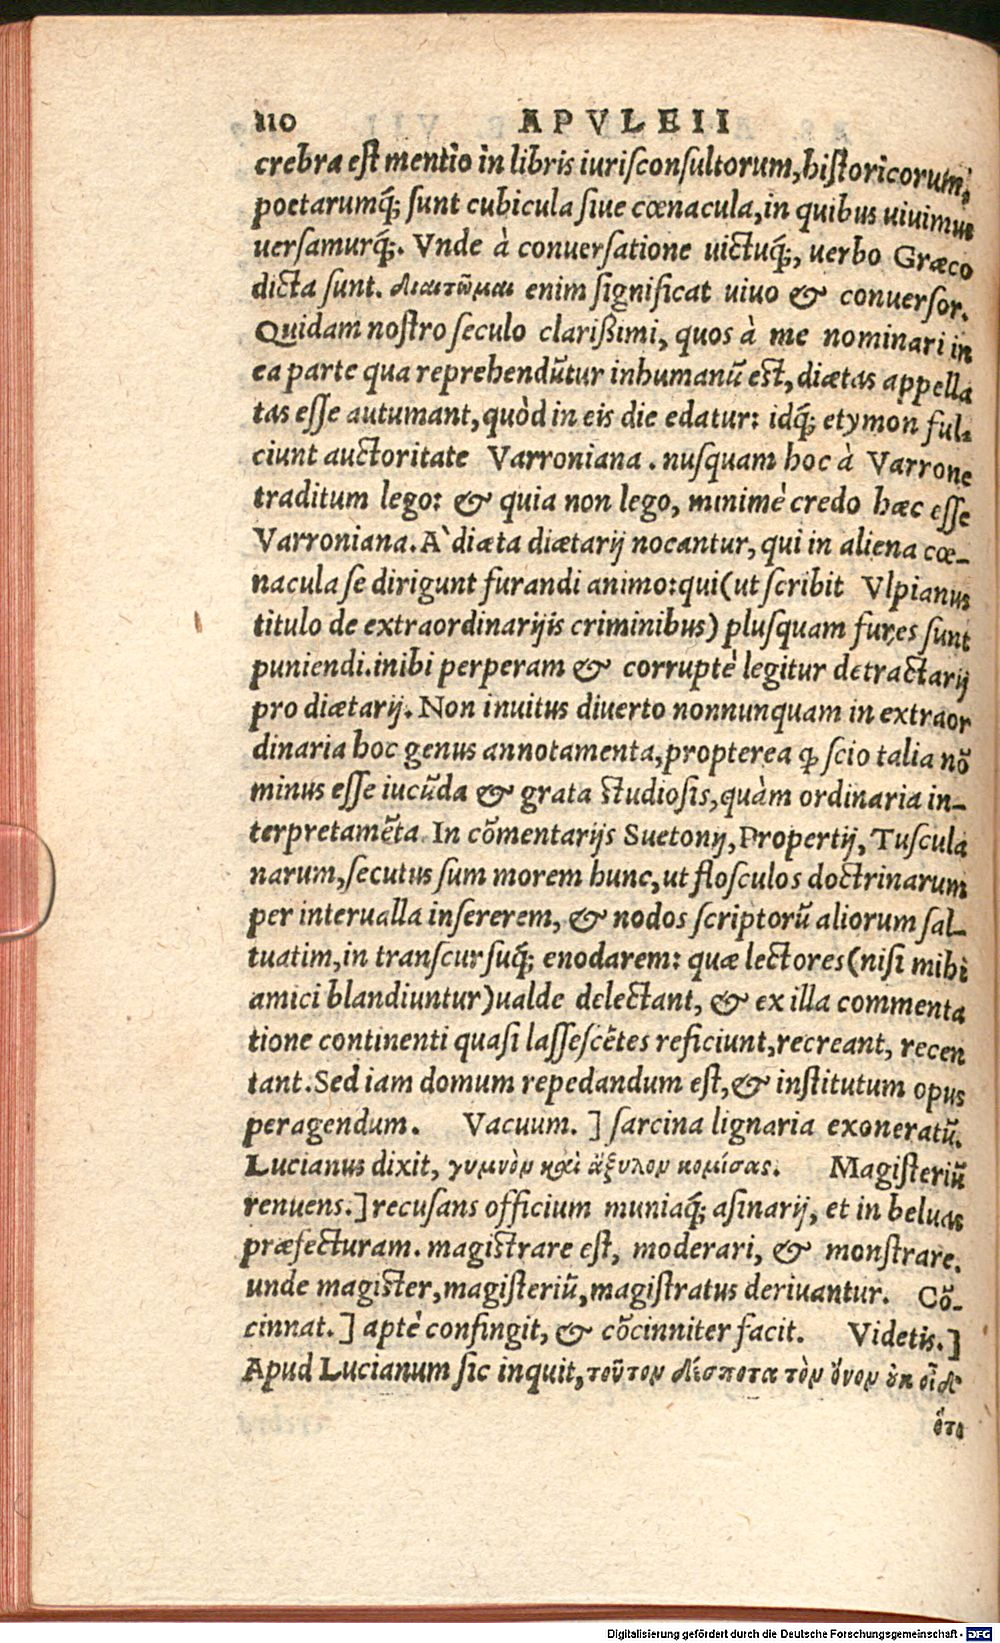 110 APVLEII
crebra est mentio in libris iurisconsultorum, historicorum,
poetarumq́; sunt cubicula siue cœnacula, in quibus uiuimus
uersamurq́;. Vnde à conuersatione uictuq́;, uerbo Græco
dicta sunt. διαιτῶμαι enim significat uiuo & conuersor.
Quidam nostro seculo clarißimi, quos à me nominari in
ea parte qua reprehendũtur inhumanũ est, diætas appella
tas esse autumant, quòd in eis die edatur: idq́; etymon ful-
ciunt auctoritate Varroniana. nusquam hoc à Varrone
traditum lego: & quia non lego, minimè credo hæc esse
Varroniana. A` diæta diætarij nocantur, qui in aliena cœ-
nacula se dirigunt furandi animo: qui (ut scribit Vlpianus
titulo de extraordinarijis criminibus) plusquam fures sunt
puniendi. inibi perperam & corruptè legitur detractarij
pro diætarij. Non inuitus diuerto nonnunquam in extraor
dinaria hoc genus annotamenta, propterea ꝙ scio talia nõ
minus esse iucũda & grata studiosis, quàm ordinaria in-
terpretamẽta In cõmentarijs Suetonij, Propertij, Tuscula
narum, secutus sum morem hunc, ut flosculos doctrinarum
per interualla insererem, & nodos scriptorũ aliorum sal-
tuatim, in transcursuq́; enodarem: quæ lectores (nisi mihi
amici blandiuntur) ualde delectant, & ex illa commenta
tione continenti quasi lassescẽtes reficiunt, recreant, recen
tant. Sed iam domum repedandum est, & institutum opus
peragendum. Vacuum. ] sarcina lignaria exoneratũ.
Lucianus dixit, γυμνὸν καὶ ἄξυλον κομίσας. Magisteriũ
renuens. ] recusans officium muniaq́; asinarij, et in beluas
præfecturam. magistrare est, moderari, & monstrare.
unde magister, magisteriũ, magistratus deriuantur. Cõ-
cinnat. ] aptè confingit, & cõcinniter facit. Videtis. ]
Apud Lucianum sic inquit, τοῦτον δέσποτα τὸν ὄνον ὐκ οἶδ'
ὅτα
Digitalisierung gefördert durch die Deutsche Forschungsgemeinschaft - DFG